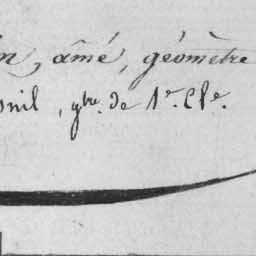 n, aîné, géomètre
nil, gtre. de 1re. Cle.